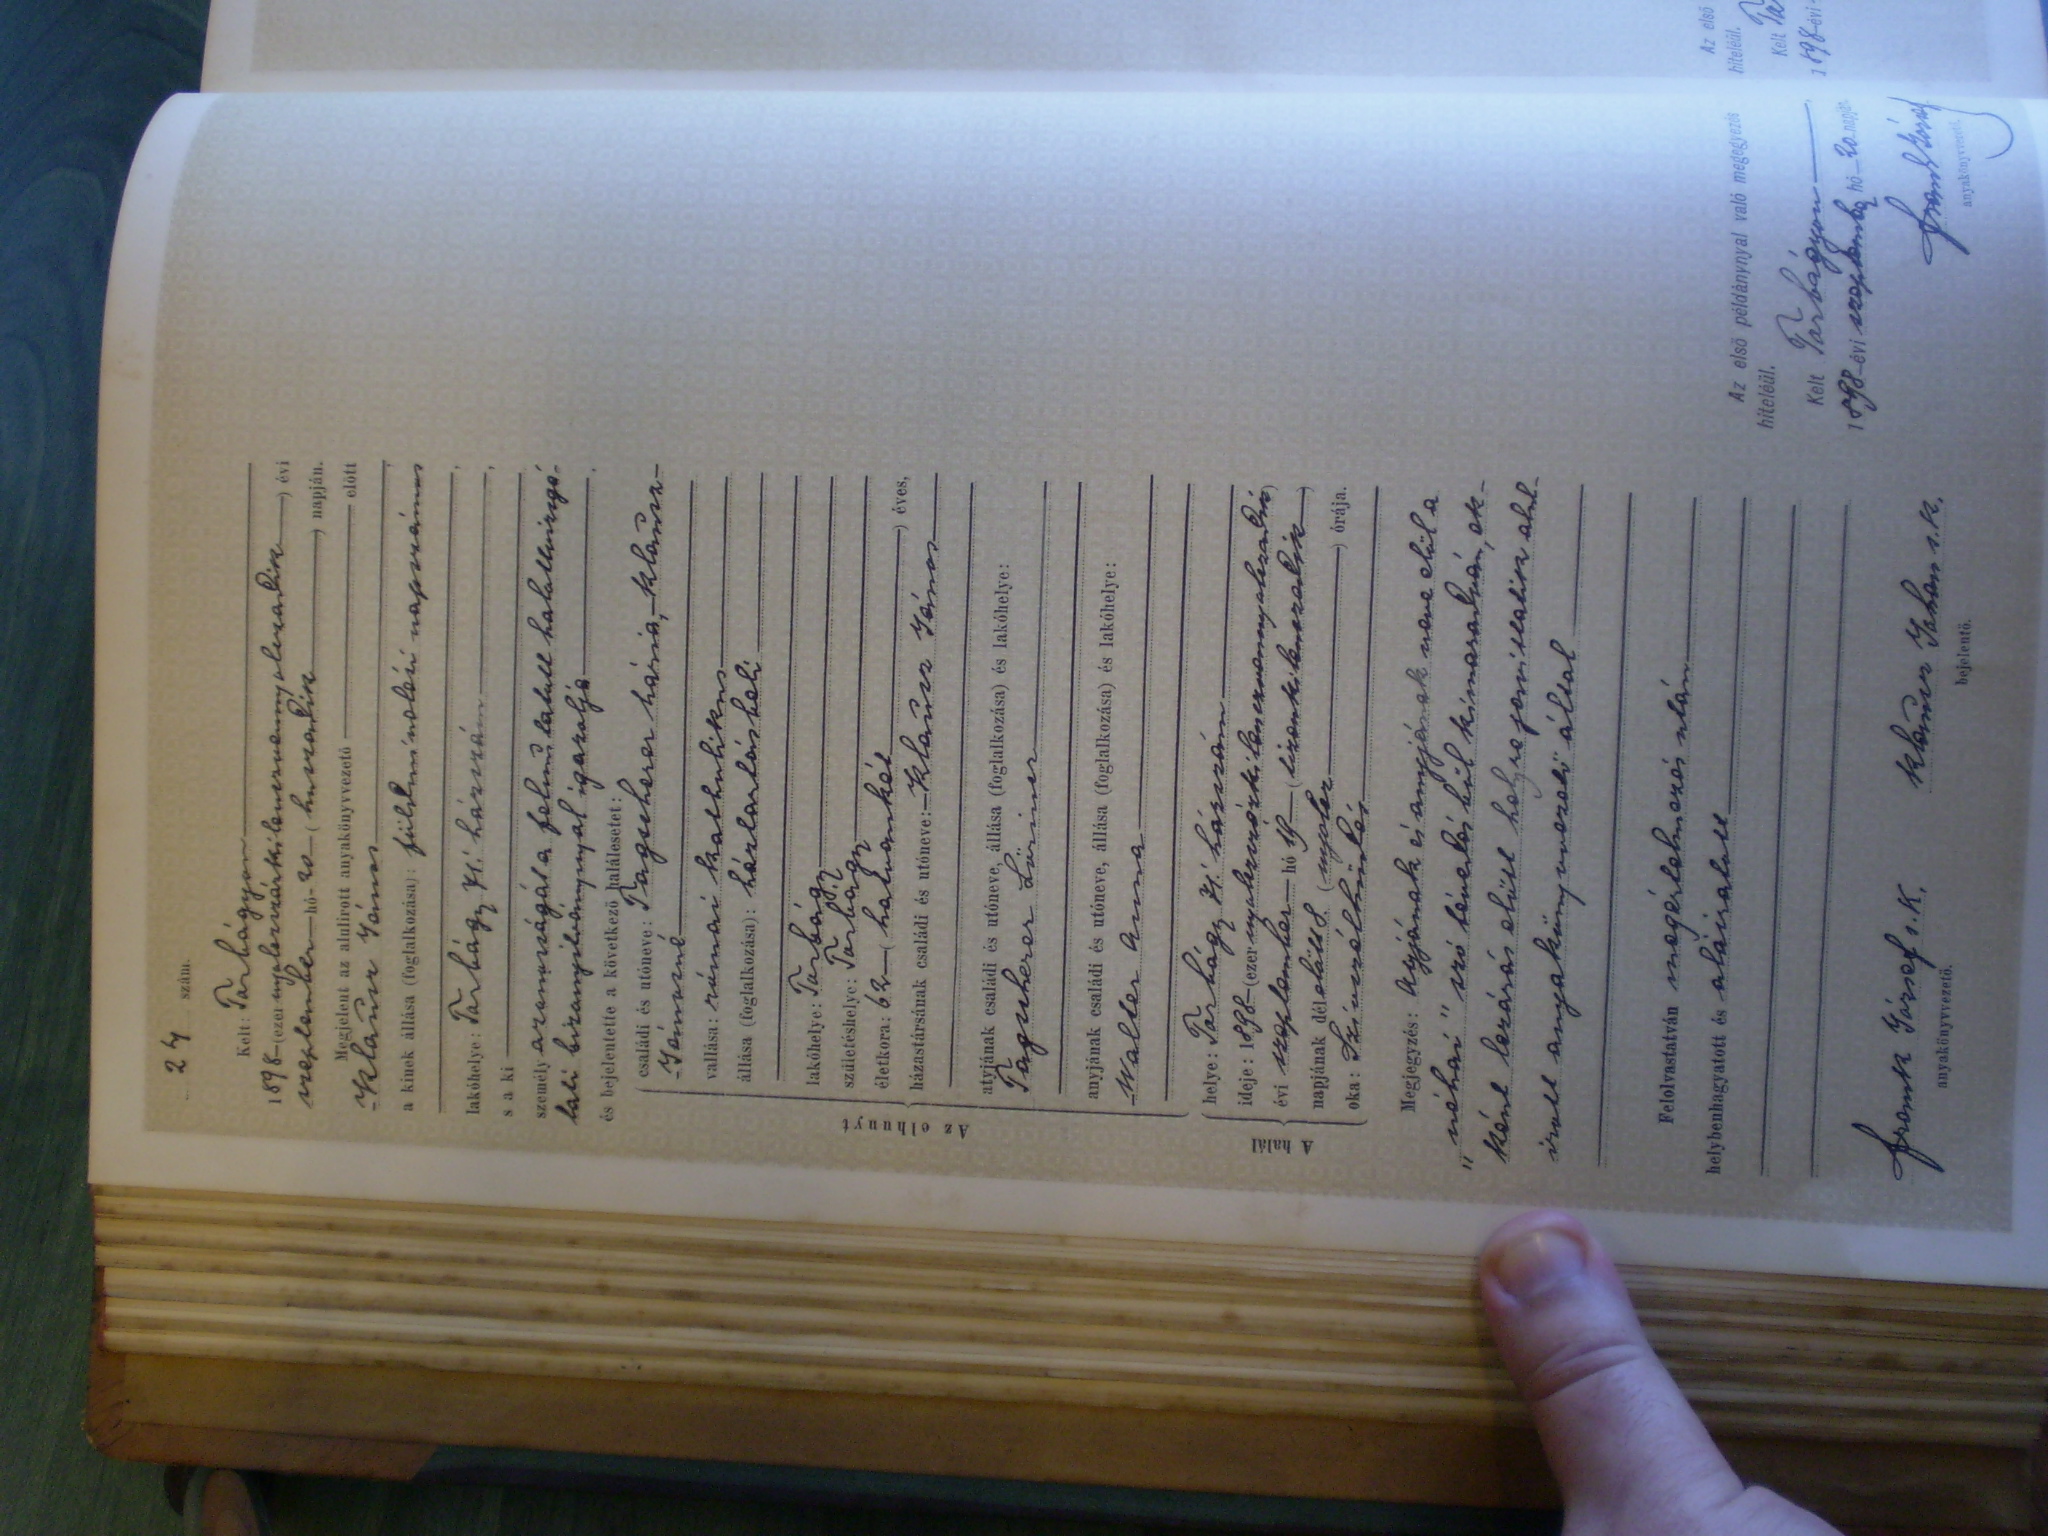 24 szám.
Kelt: Torbágyon
1898 (ezernyolcszázkilencvennyolcadik) évi
szeptember hó 20 (huszadik) napján.
Megjelent az alulirott anyakönyvvezető előtt
Klausz János
a kinek állása (foglalkozása): földmivelési napszámos
lakóhelye: Torbágy 71. házszám
s a ki
személyazonosságát a felmutatott halottvizsgá-
lati bizonyitványnyal igazolja
és bejelentette a következő halálesetet:
Az elhunyt
családi és utóneve: Tagscherer Mária, Klausz
Jánosné
vallása: római katholikus
állása (foglalkozása): háztartásbeli
lakóhelye: Torbágy
születéshelye: Torbágy
életkora: 62 (hatvankét) éves,
házastársának családi és utóneve: Klausz János
atyjának családi és utóneve, állása (foglalkozása) és lakóhelye:
Tagscherer Lőrincz
anyjának családi és utóneve, állása (foglalkozása) és lakóhelye:
Walter Anna
A halál
helye: Torbágy 71. házszám
ideje: 1898 (ezernyolcszázkilencvennyolcadik)
évi szeptember hó 19 (tizenkilencedik)
napjának délelőtt 8 (nyolcz) órája.
oka: Szivszélhüdés
Megjegyzés: Atyjának és anyjának neve elül a
"néhai" szó tévedés ből kimaradván, ek-
ként lezárás előtt helyreigazittatik alul-
irott anyakönyvvezető által
Felolvastatván megértelmezés után
helybenhagyatott és aláiratott
Frank József s.k. Klausz Johan s.k.
anyakönyvvezető. bejelentő.
Az első példánynyal való megegyezés
hiteléül.
Kelt Torbágyon
1898 évi szeptember hó 20 napján
Frank József
anyakönyvvezető.
Az első
hiteléül.
Kelt
1898 évi